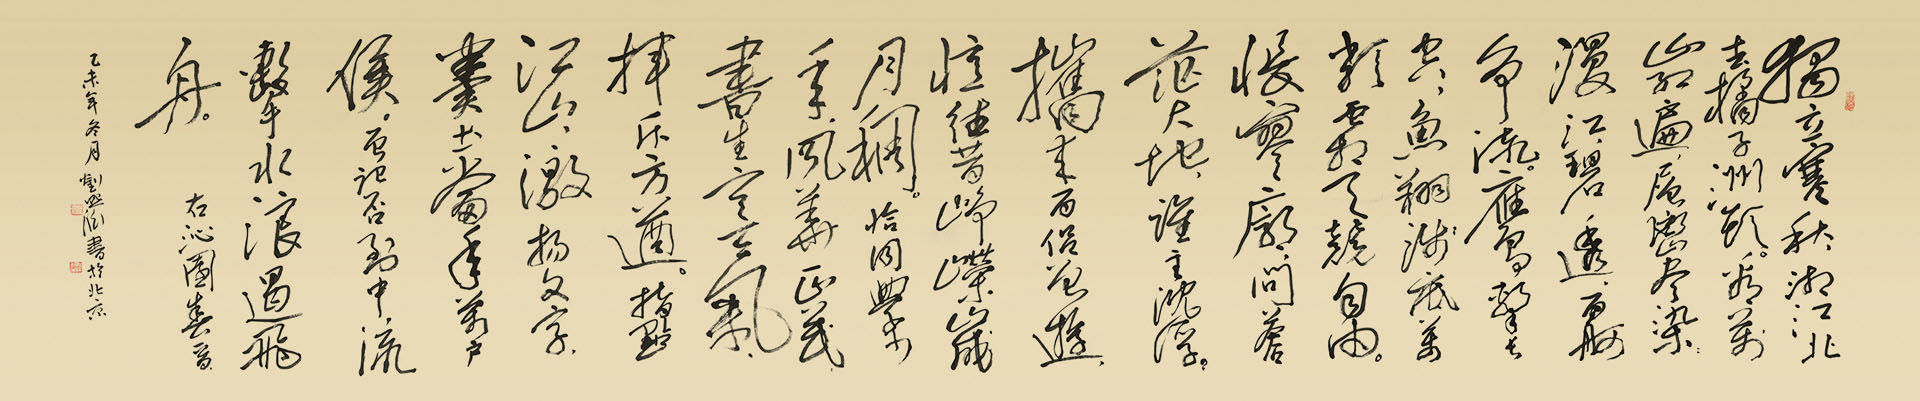 獨立寒秋湘江北
去橘子洲頭。看萬
山紅遍層巒盡染
漫江碧透百舸
爭流。鷹擊長
空，魚翔淺底萬
類霜天競自由。
悵寥廓，問蒼
茫大地，誰主沈浮。
攜來百侶曾遊，
憶往昔崢嶸歲
月稠。恰同學少
年，風華正茂
書生意氣，
揮斥方遒。指點
江山，激揚文字，
糞土當年萬戶
侯。曾記否到中流
擊水浪遏飛
舟。
右沁園春
乙未年冬月劉 書於北京